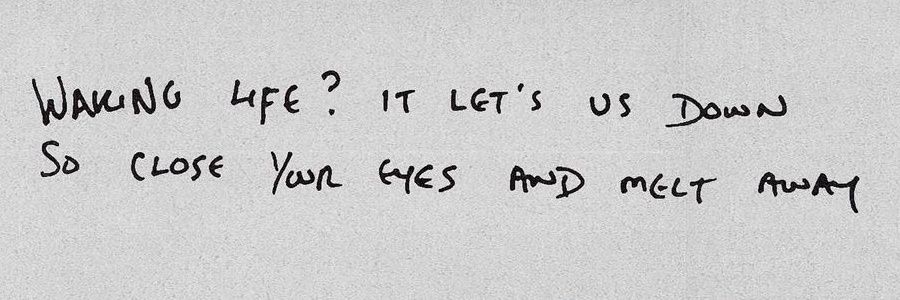 WAKING LIFE? IT LET'S US DOWN
SO CLOSE YOUR EYES AND MELT AWAY